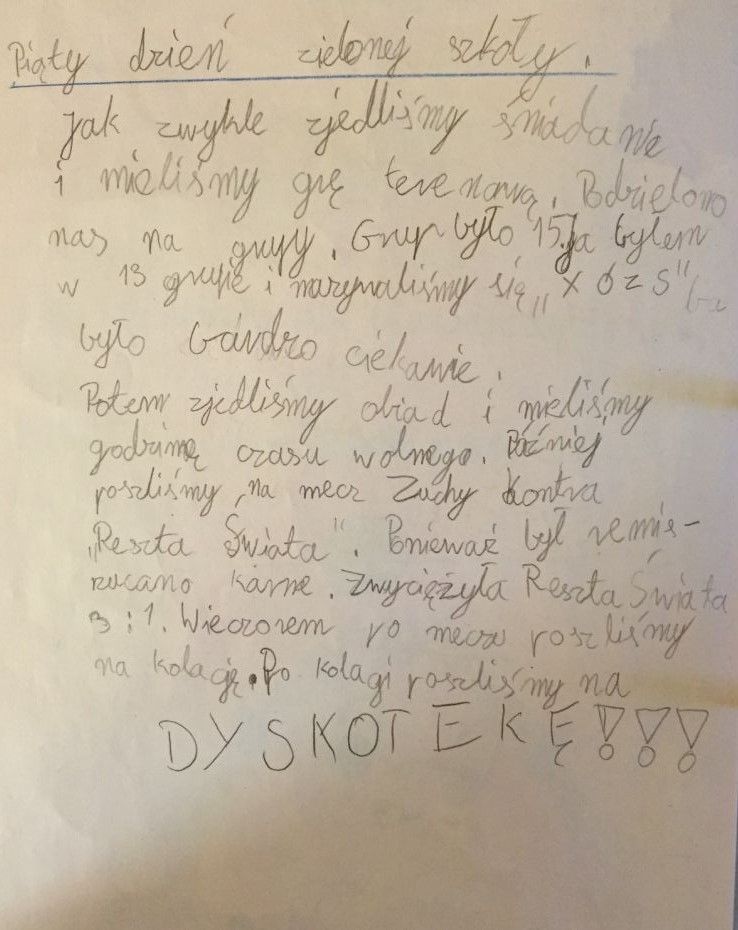 Piąty dzień zielonej szkoły.
Jak zwykle zjedliśmy śniadanie
i mieliśmy grę terenową. Podzielono
nas na grupy. Grup było 15. Ja byłem
w 13 grupie i nazywaliśmy się „X Ó Z S"
było bardzo ciekawie.
Potem zjedliśmy obiad i mieliśmy
godzinę czasu wolnego. Później
poszliśmy na mecz Zuchy kontra
„Reszta Świata". Ponieważ był remis-
rzucano karne. Zwyciężyła Reszta Świata
3:1. Wieczorem po meczu poszliśmy
na kolację. Po kolagi poszliśmy na
DYSKOTEKĘ!!!